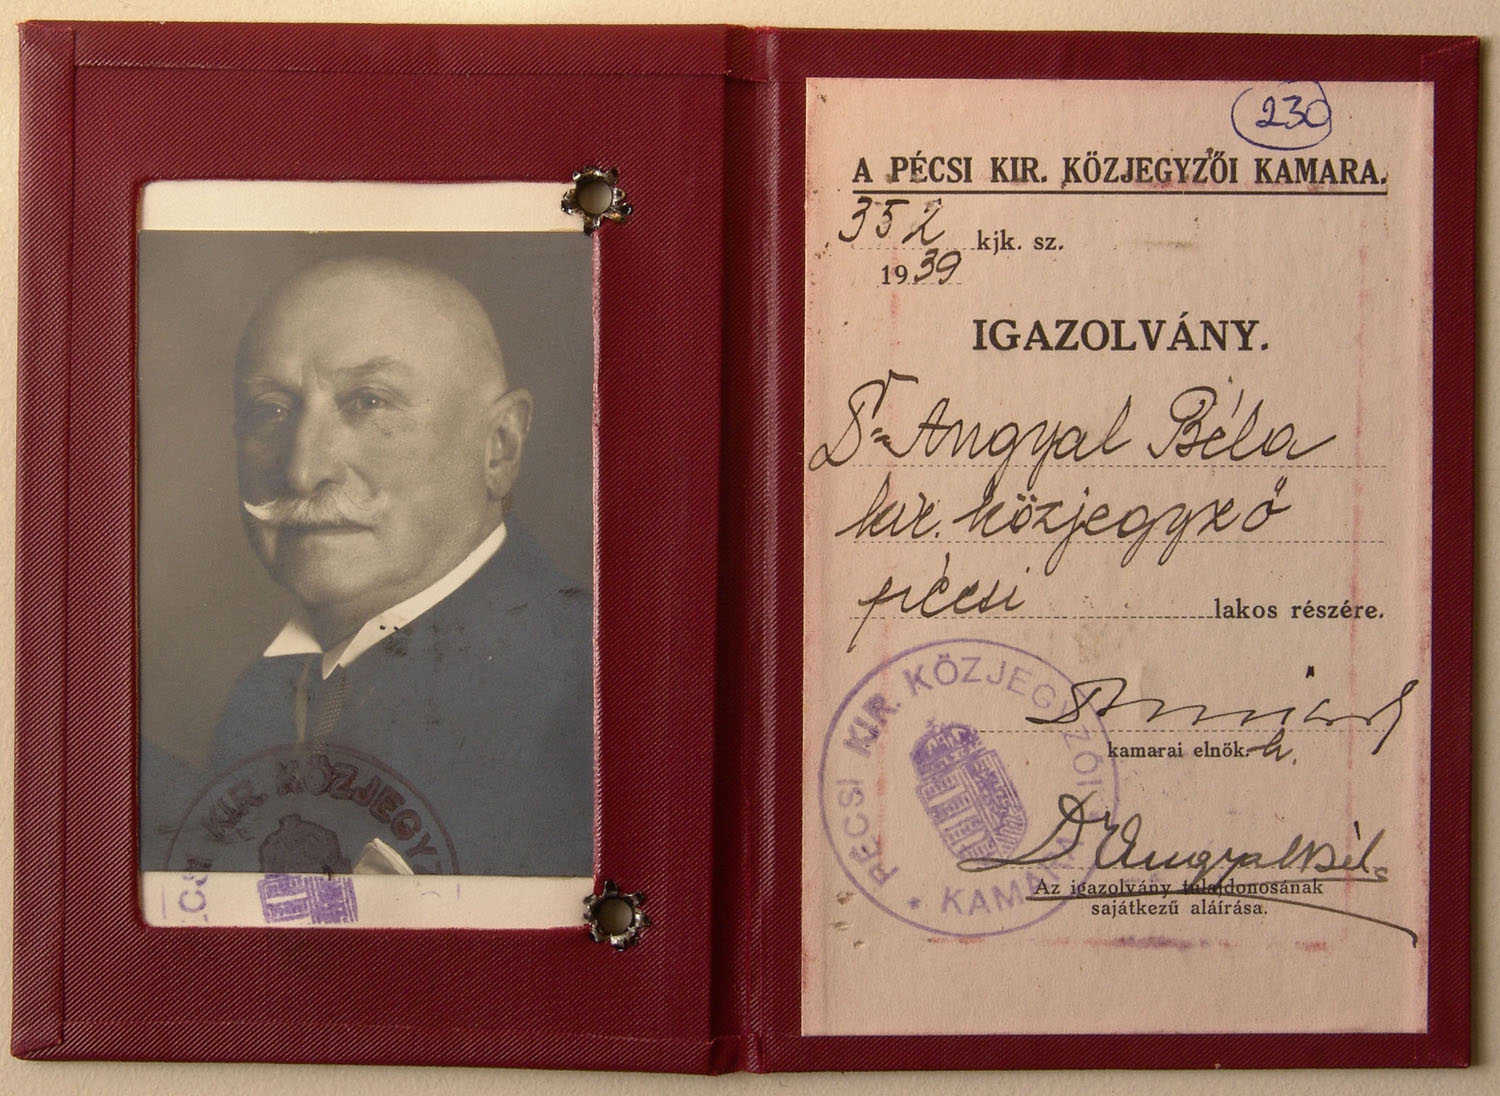 230
A PÉCSI KIR. KÖZJEGYZŐI KAMARA.
352 kjk. sz.
1939
IGAZOLVÁNY.
Dr. Angyal Béla
kir. közjegyző
pécsi lakos részére.
kamarai elnök. h.
Dr Angyal Béla
Az igazolvány tulajdonosának
sajátkezű aláírása.
PÉCSI KIR. KÖZJEGYZŐI KAMARA
CSI KIR. KÖZJEGYZ